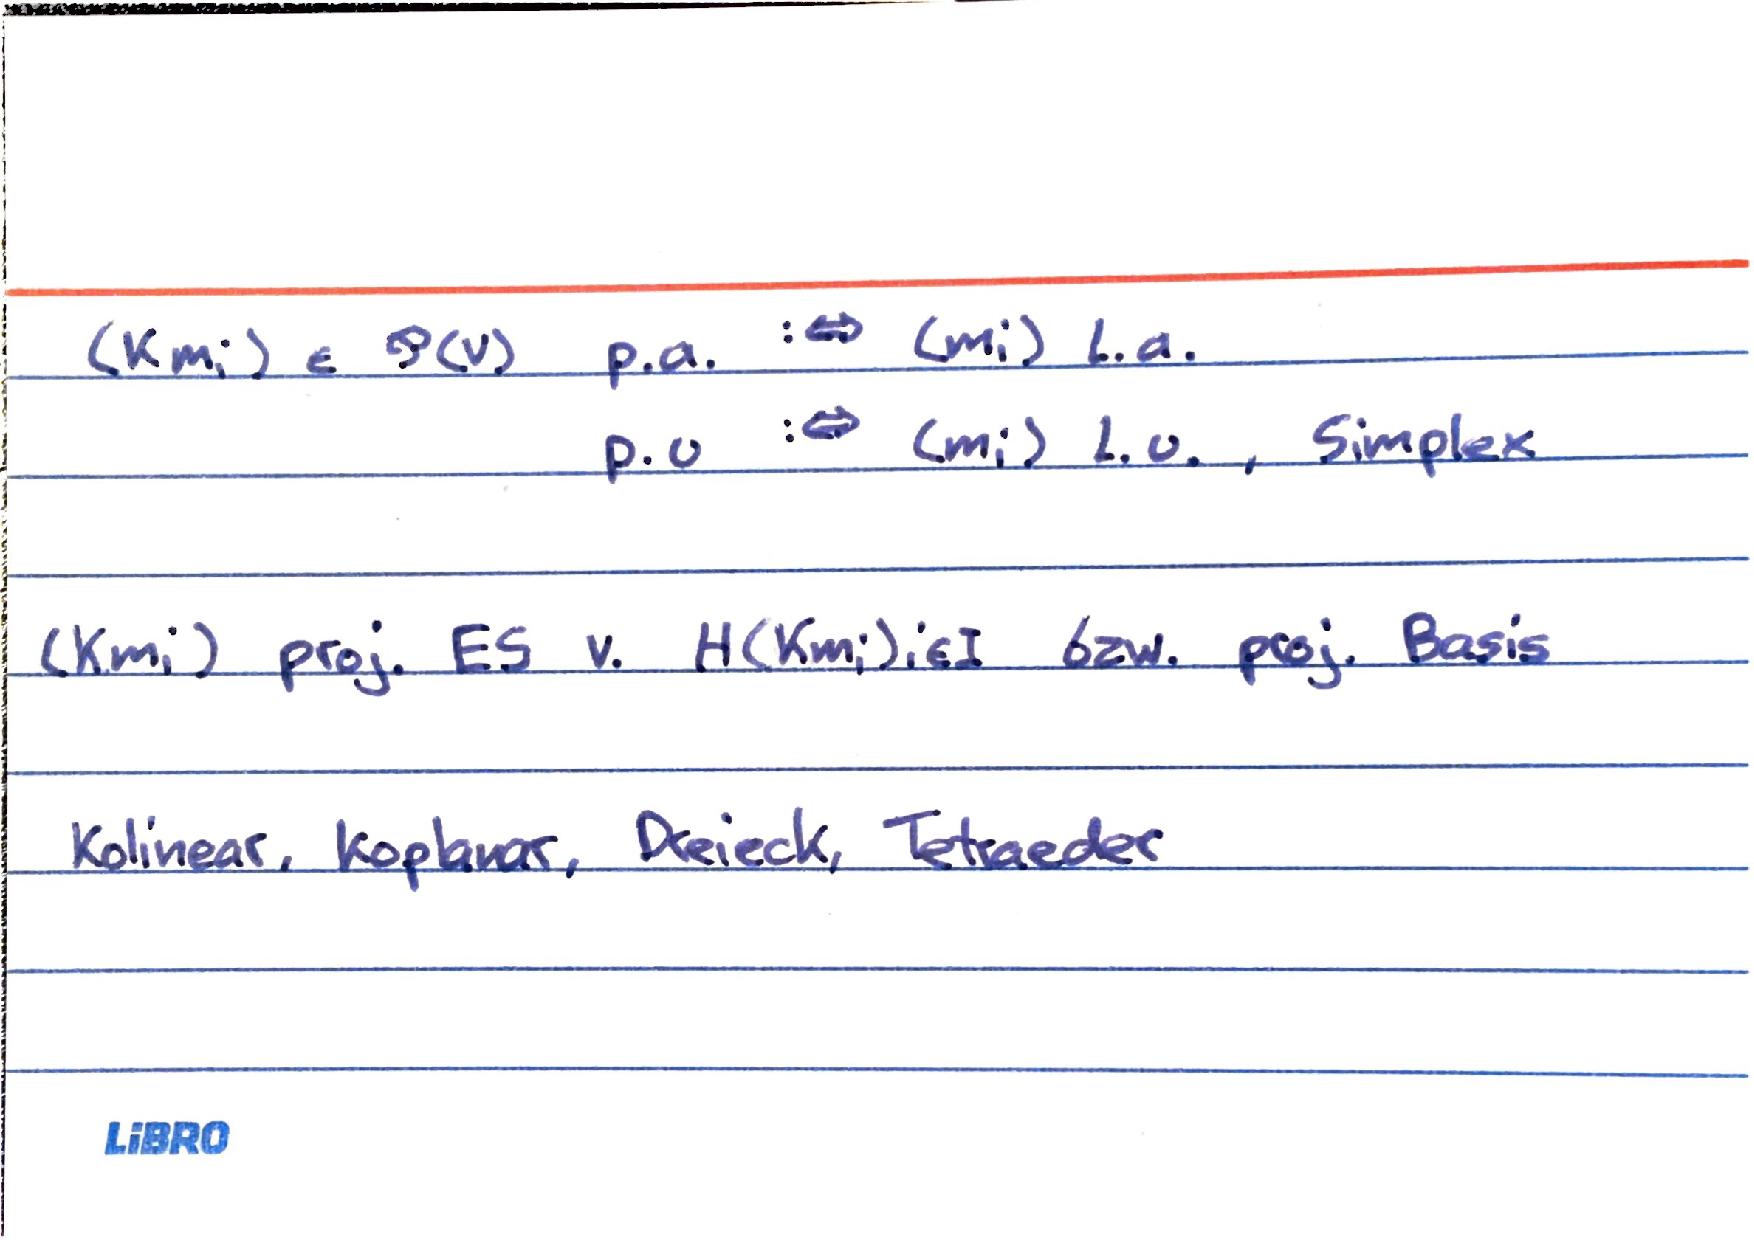 (Kmᵢ) ∈ 𝒫(V) p.a. :⇔ (mᵢ) l.a.
p.u :⇔ (mᵢ) l.u., Simplex
(Kmᵢ) proj. ES v. H(Kmᵢ)i∈I bzw. proj. Basis
Kolinear, Koplanar, Dreieck, Tetraeder
LiBRO